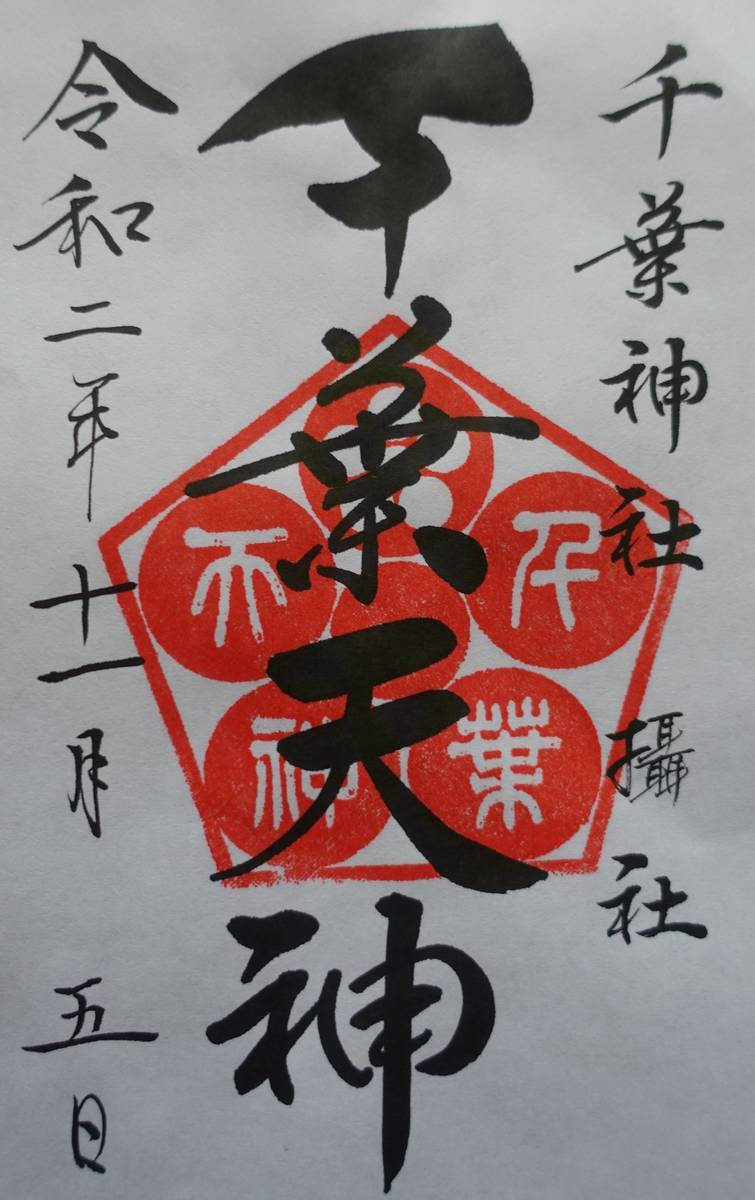 千葉神社 攝社
千葉天神
令和二年十一月五日
千葉
天神